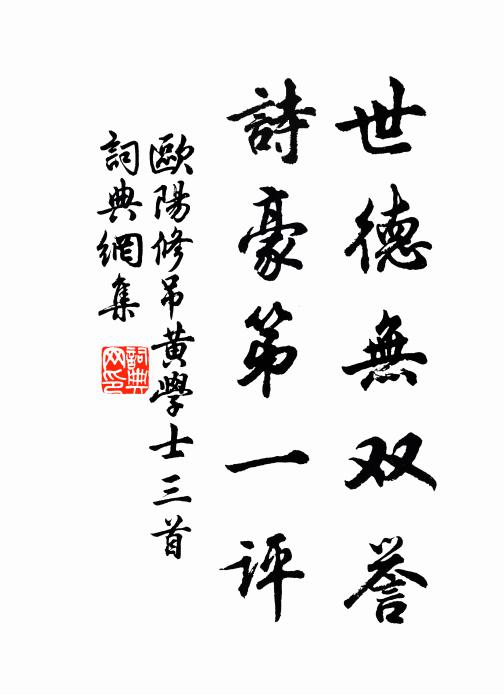 世德無双誉
詩豪第一评
歐陽修吊黄學士三首
詞典網集
詞典网印